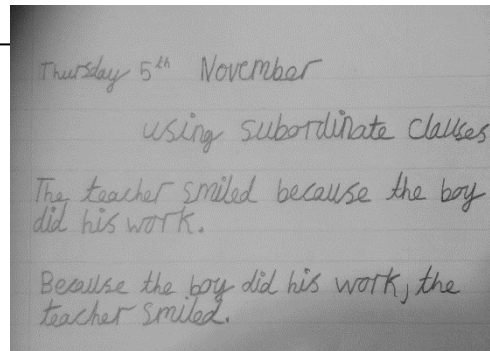 Thursday 5th November
using subordinate clauses
The teacher smiled because the boy
did his work.
Because the boy did his work, the
teacher smiled.